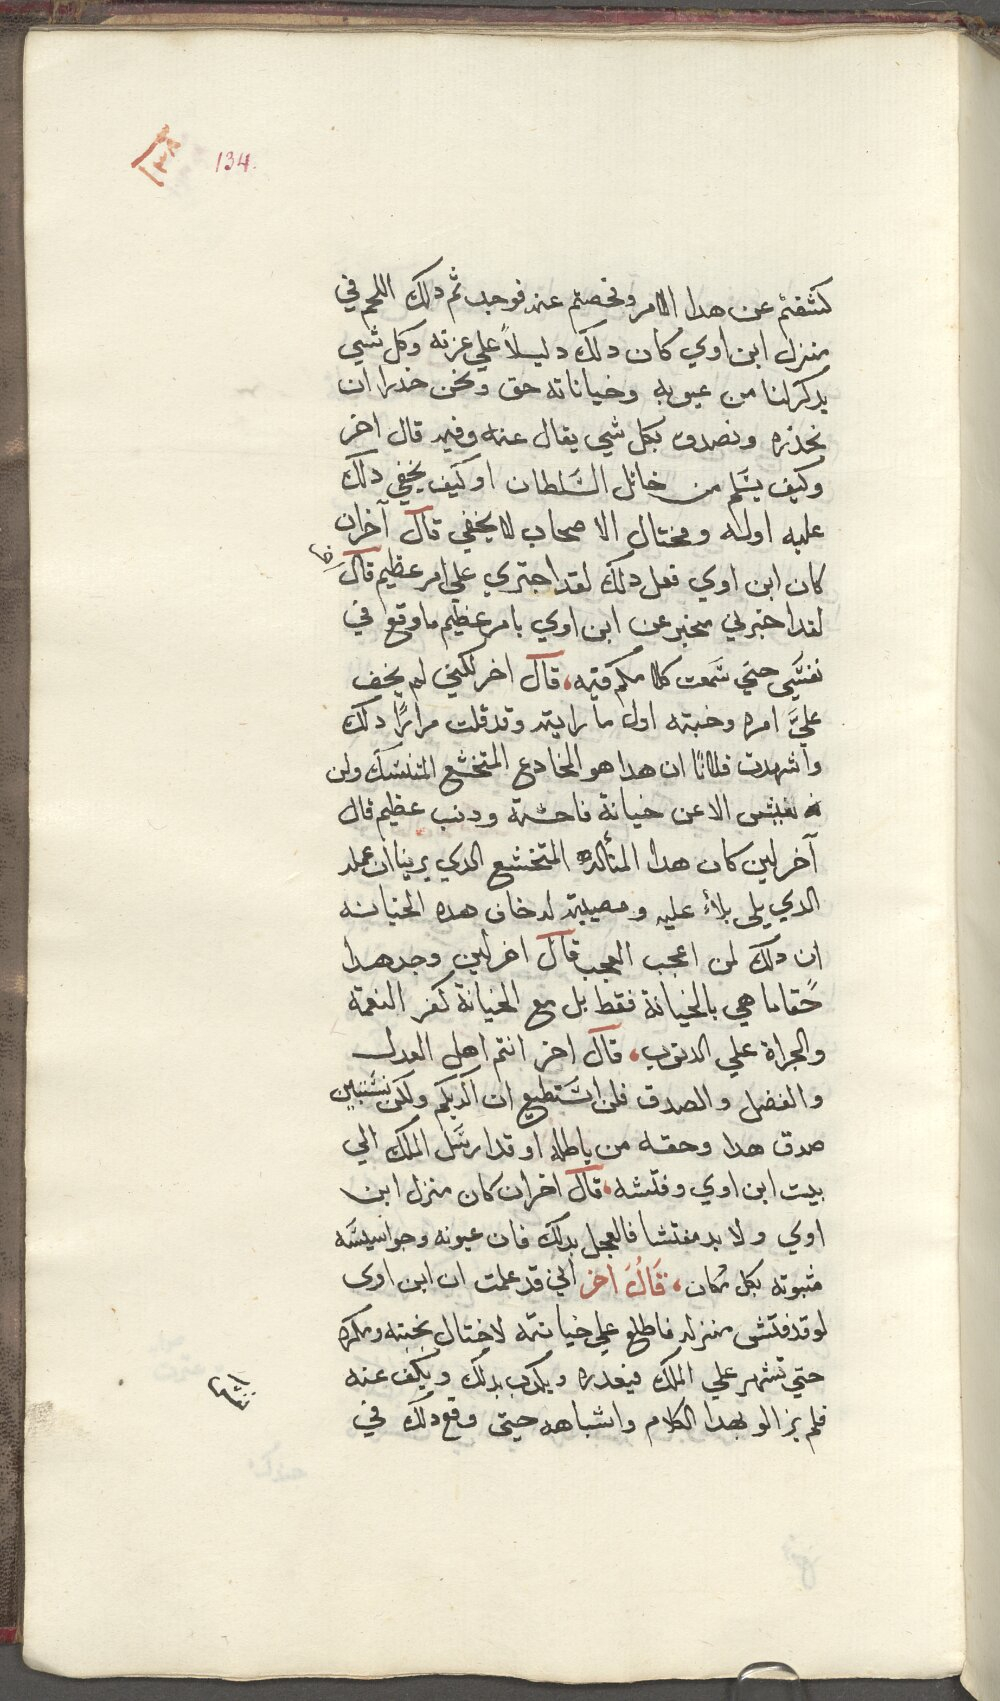 ١٣٨
134.
كشفتم عن هدا الامر وفحصتم عنه فوجد ثم دلك اللحم في
منزل ابن اوي كان دلك دليلاً علي عزته وكل شي
يدكر لنا من عيوبه وخياناته حق ونحن حذرا ان
نحذره ونصدق بكل شي يقال عنه وفيه قال اخر
وكيف يسَّلم من خاتل السَّلطان او كيف يخفي دلك
عليه اوله ومختال الاصحاب لا يخفي قال آخر ان
كان ابن اوي فعل دلك لقد اجتري علي امر عظيم قال
اخر
لقد اخبرني مخبر عن ابن اوي بامر عظيم ما وقع في
نفسَّي حتي سَّمعت كلامكم فيه، قال اخر لكني لم يخف
عليَّ امره وخبته اول ما رايته وقد قلت مرارًا دلك
واشهدت فلانًا ان هدا هو المخادع المتخشع المتنسّك ولن
نفتش الا عن خيانة فاحشة ودنب عظيم قال
آخر لين كان هدا المتأله المتخشع الدي يرينا ان عمله
الدي يلي بلاء عليه ومصيبة لدخان هده الخيانه
ان دلك لمن اعجب العجب قال اخر لين وجد هدا
حًقا ما هي بالخيانة فقط بل مع الخيانة كفر النعمة
والجراة علي الدنوب، قال اخر انتم اهل العدل
والفضل والصدق فلن اسَّتطيع ان اكدبكم ولكن سَّنبين
صدق هدا وحقه من باطله او قد ارسَّل الملك الي
بيت ابن اوي وفتشه، قال اخر ان كان منزل ابن
اوي ولا بد مفتشا فالعجل بدلك فان عيونه وجواسيسَّه
مثبوته بكل مكان، قَالَ اخر اني قد علمت ان ابن اوى
لو قد فتش منزله فاطلع علي خيانته لاختال بخبته ومكره
حتي تشهر علي الملك فيعدره ويكدب بدلك ويكف عنه
فلم يزالو بهدا الكلام واشباهه حتى وقع دلك في